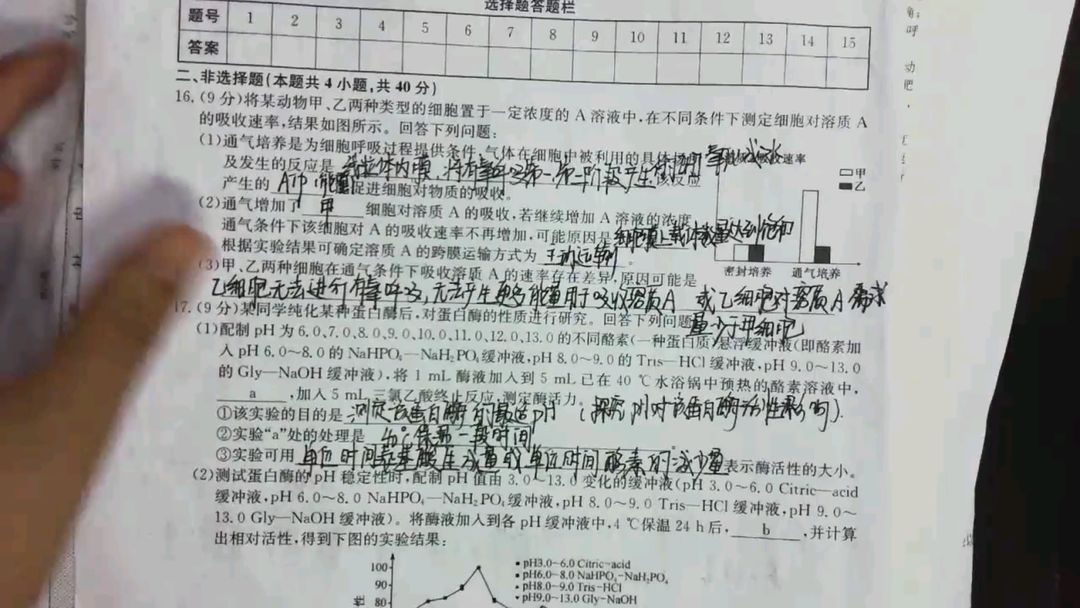 选择题答题栏
题号 1 2 3 4 5 6 7 8 9 10 11 12 13 14 15
答案
二、非选择题(本题共4小题,共40分)
16.(9分)将某动物甲、乙两种类型的细胞置于一定浓度的A溶液中,在不同条件下测定细胞对溶质A
的吸收速率,结果如图所示。回答下列问题:
(1)通气培养是为细胞呼吸过程提供条件,气体在细胞中被利用的具体场所
及发生的反应是 线粒体内膜,将有氧呼吸第一、第二阶段产生的[H]与氧气结合生成水 该反应
产生的 ATP(能量) 促进细胞对物质的吸收。
吸收速率
□甲
■乙
密封培养 通气培养
(2)通气增加了 甲 细胞对溶质A的吸收,若继续增加A溶液的浓度
通气条件下该细胞对A的吸收速率不再增加,可能原因是 细胞膜上载体数量达到饱和
根据实验结果可确定溶质A的跨膜运输方式为 主动运输 。
(3)甲、乙两种细胞在通气条件下吸收溶质A的速率存在差异,原因可能是
乙细胞无法进行有氧呼吸,无法产生更多能量用于吸收溶质A 或乙细胞对溶质A需求
量少于甲细胞
17.(9分)某同学纯化某种蛋白酶后,对蛋白酶的性质进行研究。回答下列问题
(1)配制pH为6.0、7.0、8.0、9.0、10.0、11.0、12.0、13.0的不同酪素(一种蛋白质)悬浮缓冲液(即酪素加
入pH 6.0~8.0的NaHPO₄—NaH₂PO₄缓冲液,pH 8.0~9.0的Tris—HCl缓冲液,pH 9.0~13.0
的Gly—NaOH缓冲液),将1 mL酶液加入到5 mL已在40 ℃水浴锅中预热的酪素溶液中,
a ,加入5 mL三氯乙酸终止反应,测定酶活力。
①该实验的目的是 测定该蛋白酶的最适pH (探究pH对该蛋白酶活性影响).
②实验“a”处的处理是 40℃保温一段时间
③实验可用 单位时间氨基酸生成量或单位时间酪素的减少量 表示酶活性的大小。
(2)测试蛋白酶的pH稳定性时,配制pH值由3.0~13.0变化的缓冲液(pH 3.0~6.0 Citric—acid
缓冲液,pH 6.0~8.0 NaHPO₄—NaH₂PO₄缓冲液,pH 8.0~9.0 Tris—HCl缓冲液,pH 9.0~
13.0 Gly—NaOH缓冲液)。将酶液加入到各pH缓冲液中,4 ℃保温24 h后, b ,并计算
出相对活性,得到下图的实验结果:
100
90
80
pH3.0~6.0 Citric-acid
pH6.0~8.0 NaHPO₄-NaH₂PO₄
pH8.0~9.0 Tris-HCl
pH9.0~13.0 Gly-NaOH